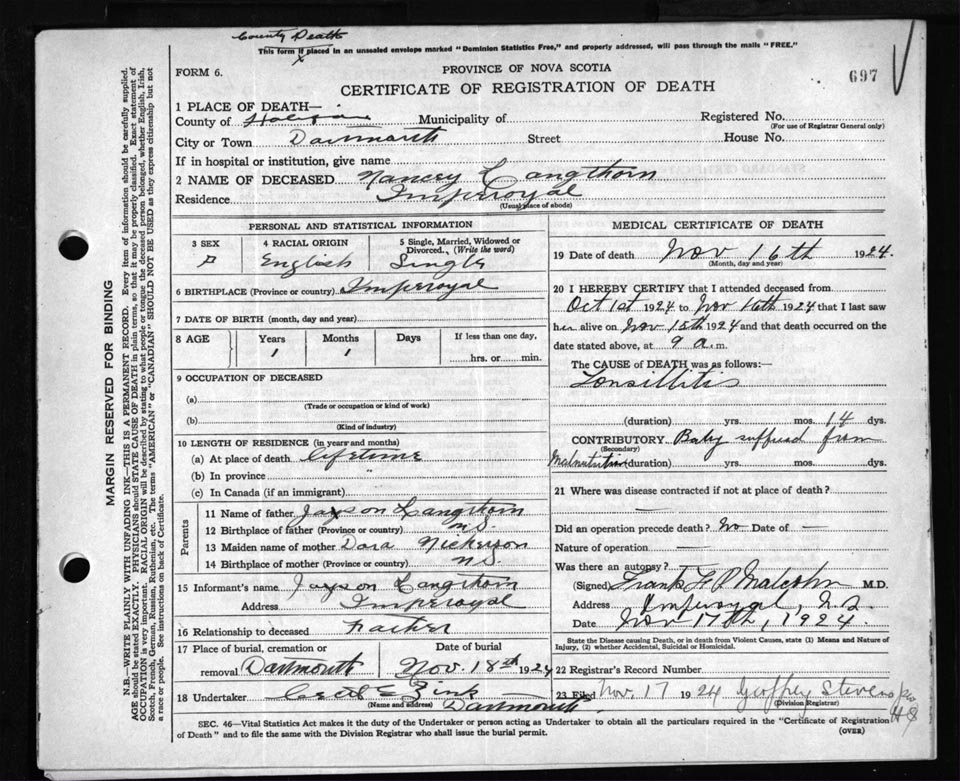 County Death
This form if placed in an unsealed envelope marked "Dominion Statistics Free," and properly addressed, will pass through the mails "FREE."
FORM 6.
PROVINCE OF NOVA SCOTIA
697
CERTIFICATE OF REGISTRATION OF DEATH
1 PLACE OF DEATH—
County of Halifax Municipality of Registered No.
(For use of Registrar General only)
City or Town Dartmouth Street House No.
If in hospital or institution, give name
2 NAME OF DECEASED Nancey Langthorn
Residence Imperoyal
(Usual place of abode)
PERSONAL AND STATISTICAL INFORMATION
3 SEX 4 RACIAL ORIGIN 5 Single, Married, Widowed or Divorced. (Write the word)
F English Single
6 BIRTHPLACE (Province or country) Imperoyal
7 DATE OF BIRTH (month, day and year)
8 AGE Years Months Days If less than one day,
1 1 hrs. or min.
9 OCCUPATION OF DECEASED
(a)
(Trade or occupation or kind of work)
(b)
(Kind of industry)
10 LENGTH OF RESIDENCE (in years and months)
(a) At place of death lifetime
(b) In province "
(c) In Canada (if an immigrant)
Parents
11 Name of father Jayson Langthorn
12 Birthplace of father (Province or country) N.S.
13 Maiden name of mother Dora Nickerson
14 Birthplace of mother (Province or country) N.S.
15 Informant's name Jayson Langthorn
Address Imperoyal
16 Relationship to deceased Father
17 Place of burial, cremation or removal Dartmouth
Date of burial
Nov. 18th 1924
18 Undertaker Cecil E Zink
(Name and address) Dartmouth
MEDICAL CERTIFICATE OF DEATH
19 Date of death Nov 16th 1924.
(Month, day and year)
20 I HEREBY CERTIFY that I attended deceased from
Oct 1st 1924 to Nov 16th 1924 that I last saw
her alive on Nov 15th 1924 and that death occurred on
date stated above, at 9 a.m.
The CAUSE of DEATH was as follows:—
Tonsillitis
(duration) yrs. mos. 14 dys.
CONTRIBUTORY Baby suffered from
(Secondary)
Malnutrition (duration) yrs. mos. dys.
21 Where was disease contracted if not at place of death?
—
Did an operation precede death? No Date of —
Nature of operation —
Was there an autopsy?
(Signed) Frank F P Malcolm M.D.
Address Imperoyal, N.S.
Date Nov 17th, 1924.
State the Disease causing Death, or in death from Violent Causes, state (1) Means and Nature of
Injury, (2) whether Accidental, Suicidal or Homicidal.
22 Registrar's Record Number
23 Filed Nov. 17 1924 Geoffrey Stevens
(Division Registrar)
SEC. 46—Vital Statistics Act makes it the duty of the Undertaker or person acting as Undertaker to obtain all the particulars required in the "Certificate of Registration
of Death" and to file the same with the Division Registrar who shall issue the burial permit.
(OVER)
MARGIN RESERVED FOR BINDING
N.B.—WRITE PLAINLY WITH UNFADING INK—THIS IS A PERMANENT RECORD. Every item of information should be carefully supplied.
AGE should be stated EXACTLY. PHYSICIANS should STATE CAUSE OF DEATH in plain terms, so that it may be properly classified. Exact statement of
OCCUPATION is very important. RACIAL ORIGIN will be described by stating to what people or tongue the deceased person belonged, whether English, Irish,
Scotch, French, German, Russian, Ruthenian, etc. The terms "AMERICAN" or "CANADIAN" SHOULD NOT BE USED as they express citizenship but not
a race or people. See instructions on back of Certificate.